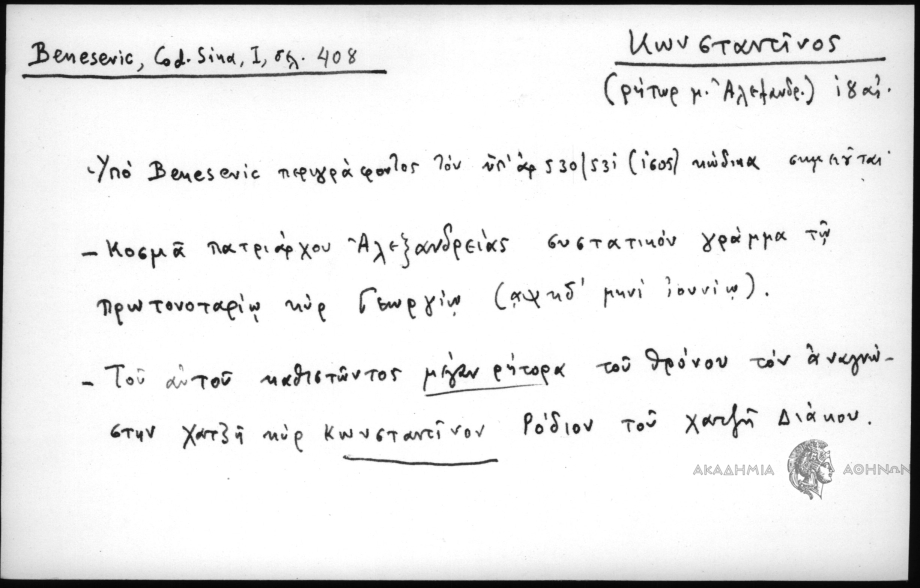 Benesevic, Cod. Sina, I, σελ. 408
Κωνσταντῖνος
(ρήτωρ μ. Ἀλεξανδρ.) ιηαι.
- Ὑπό Benesevic περιγράφοντος τόν ὑπ' ἀρ 530/531 (1505) κώδικα σημειοῦται
- Κοσμᾶ πατριάρχου Ἀλεξανδρείας συστατικόν γράμμα τῷ
πρωτονοταρίῳ κύρ Γεωργίῳ (μηνί ἰουνίῳ).
- Τοῦ αὐτοῦ καθιστῶντος μέγαν ρήτορα τοῦ θρόνου τόν ἀναγνώ-
στην χατζῆ κύρ Κωνσταντῖνον Ρόδιον τοῦ χατζῆ Διάκου.
ΑΚΑΔΗΜΙΑ ΑΘΗΝΩΝ